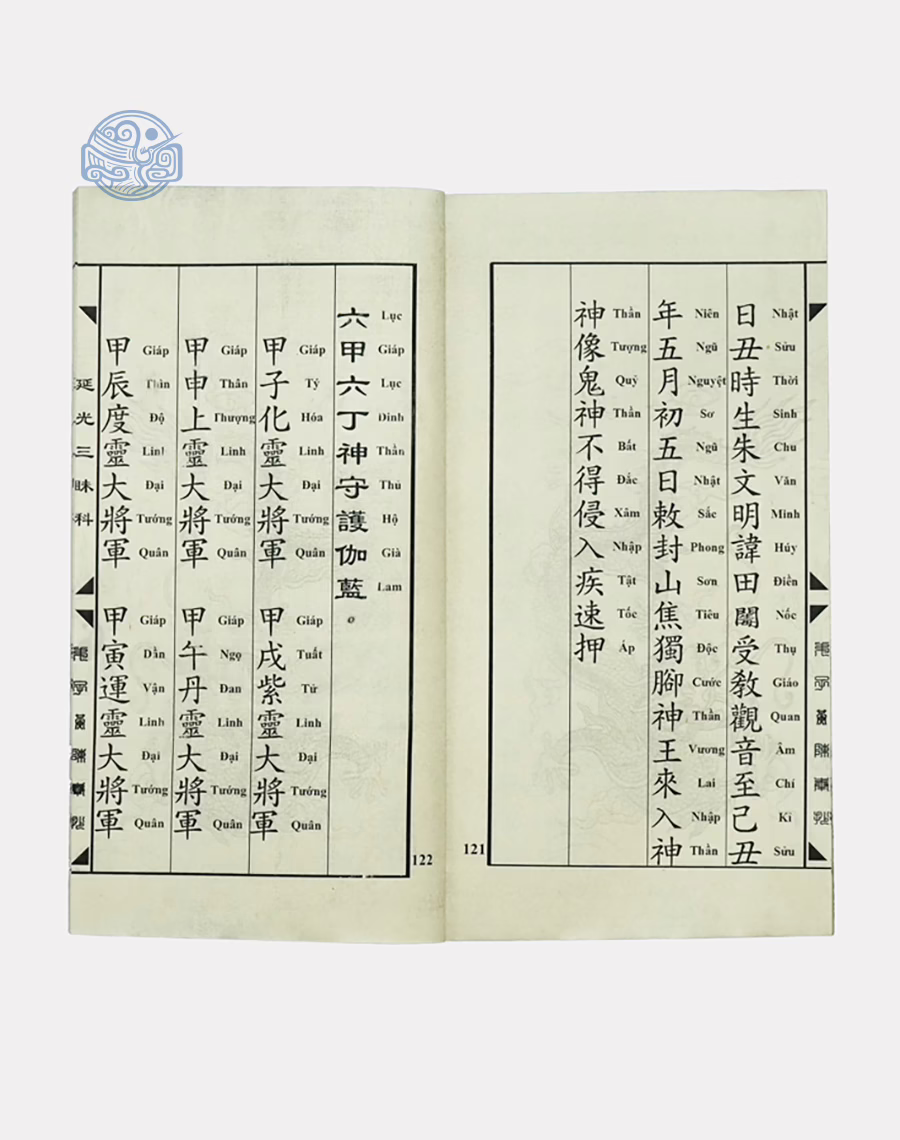 日丑時生朱文明諱田受教觀音至己丑
Nhật Sửu Thời Sinh Chu Văn Minh Húy Điền Nốc Thụ Giáo Quan Âm Chí Kỉ Sửu
年五月初五日敕封山焦獨腳神王來入神
Niên Ngũ Nguyệt Sơ Ngũ Nhật Sắc Phong Sơn Tiêu Độc Cước Thần Vương Lai Nhập Thần
神像鬼神不得侵入疾速押
Thần Tượng Quỷ Thần Bất Đắc Xâm Nhập Tật Tốc Áp
121
六甲六丁神守護伽藍
Lục Giáp Lục Đinh Thần Thủ Hộ Già Lam
甲子化靈大將軍 甲戌紫靈大將軍
Giáp Tý Hóa Linh Đại Tướng Quân Giáp Tuất Tử Linh Đại Tướng Quân
甲申上靈大將軍 甲午丹靈大將軍
Giáp Thân Thượng Linh Đại Tướng Quân Giáp Ngọ Đan Linh Đại Tướng Quân
甲辰度靈大將軍 甲寅運靈大將軍
Giáp Thìn Độ Linh Đại Tướng Quân Giáp Dần Vận Linh Đại Tướng Quân
延光三昧科
122